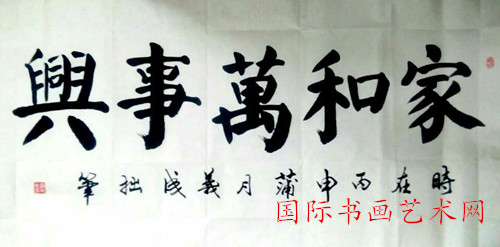 家和萬事興
時在丙申蒲月義成拙筆
国际书画艺术网